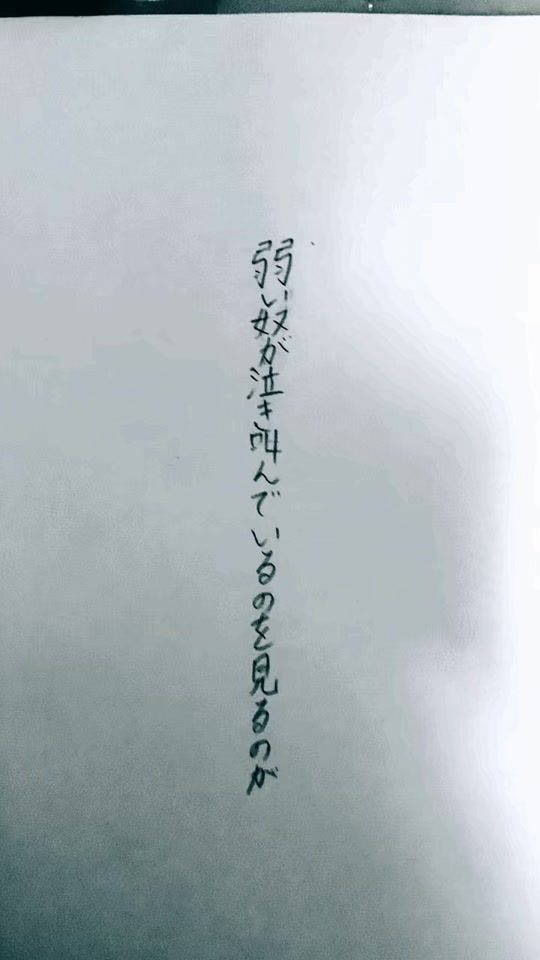 弱い奴が泣き叫んでいるのを見るのが